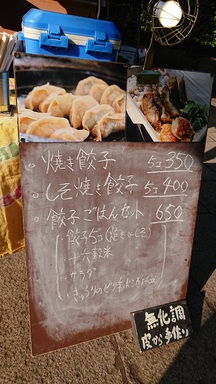 焼き餃子 5コ350
しそ焼き餃子 5コ400
餃子ごはんセット 650
餃子5コ(焼きorしそ)
十六穀米
サラダ
きゅうりの
無化調
皮から手作り